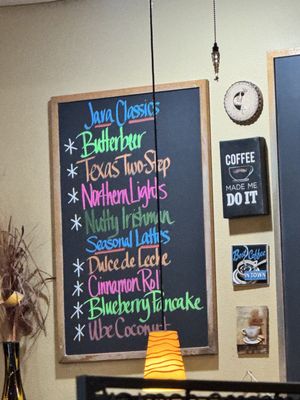 Java Classics
* Butterbeer
Texas Two-Step
* Northern Lights
* Nutty Irishman
Seasonal Lattes
* Dulce de Leche
* Cinnamon Roll
* Blueberry Pancake
* Ube Coconut
COFFEE
MADE ME
DO IT
Best Coffee
IN TOWN